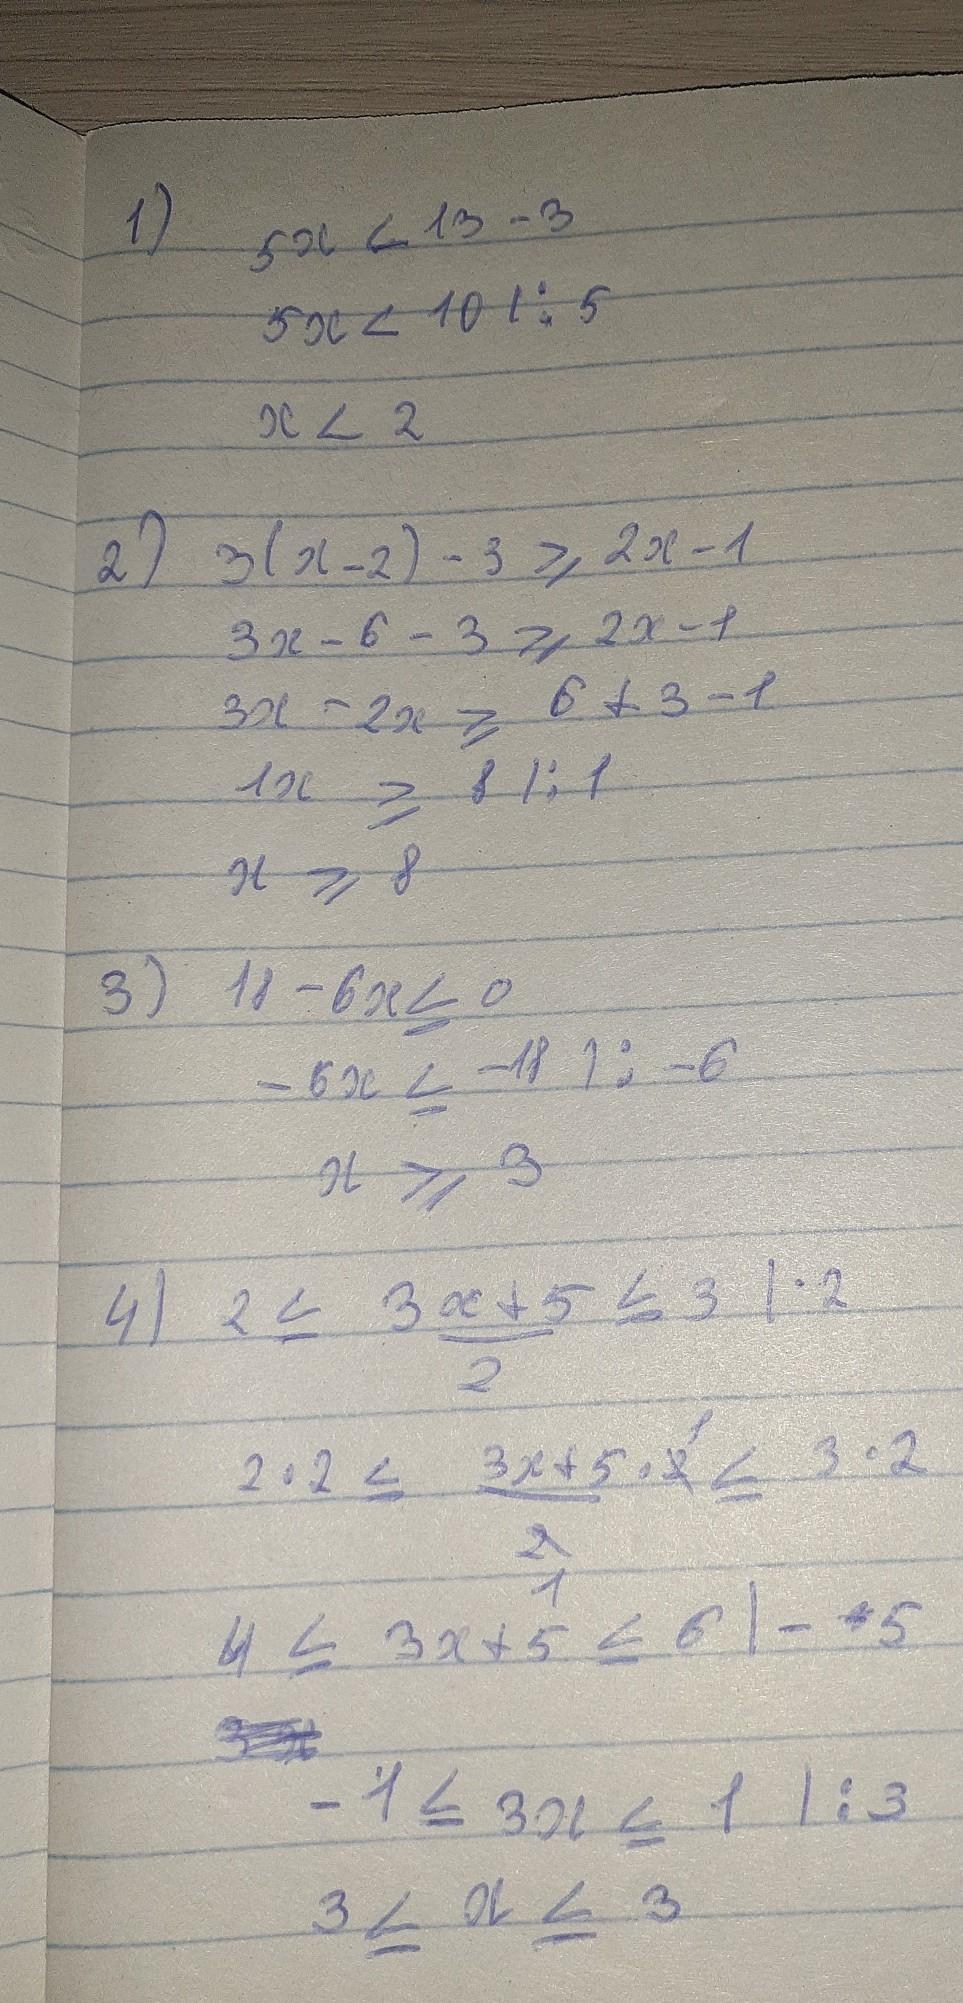 1) 5x < 13 - 3
5x < 10 |: 5
x < 2
2) 3(x-2) - 3 ⩾ 2x - 1
3x - 6 - 3 ⩾ 2x - 1
3x - 2x ≥ 6 + 3 - 1
1x ≥ 8 |: 1
x ⩾ 8
3) 18 - 6x ≤ 0
-6x ≤ -18 |: -6
x ⩾ 3
4) 2 ≤ 3x+5 ≤ 3 | · 2
2
1
2·2 ≤ 3x+5 · 2 ≤ 3·2
2
1
4 ≤ 3x+5 ≤ 6 | - 5
-1 ≤ 3x ≤ 1 |: 3
3 ≤ x ≤ 3